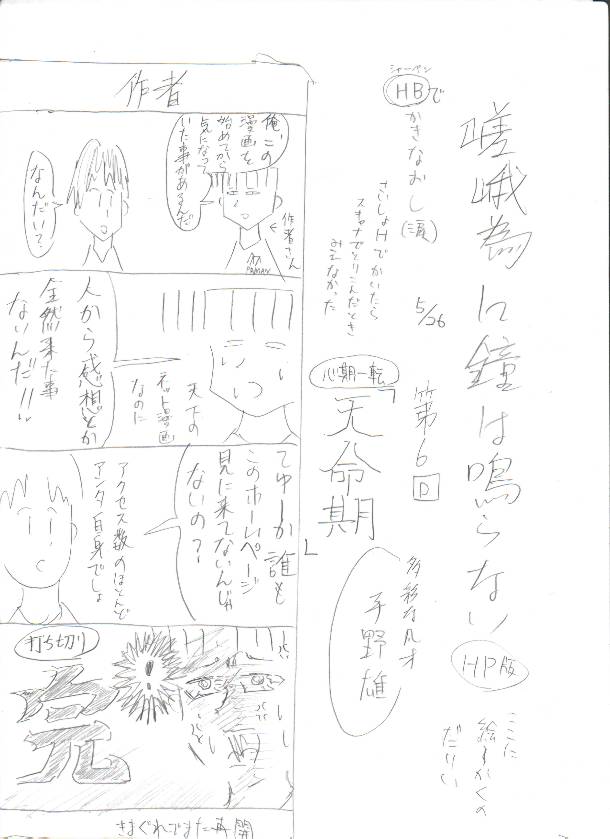 嗟峨為に鐘は鳴らない
HP版
ここに
絵をかくの
だりい
第6回
多彩な凡才
平野雄
シャーペン
HBで
かきなおし(済)
5/26
さいしょHでかいたら
スキャナでとりこんだとき
みえなかった
心期一転
「天命期」
作者
俺、この
漫画を
始めてから
気になって
いた事があるんだ
作者さん
なんだい?
人から感想とか
全然来た事
ないんだ!!
天下の
ネット漫画
なのに
てゆーか誰も
このホームページ
見に来てないんじゃ
ないの?
アクセス数のほとんど
アンタ自身でしょ
!
打ち切り
完
きまぐれでまた再開